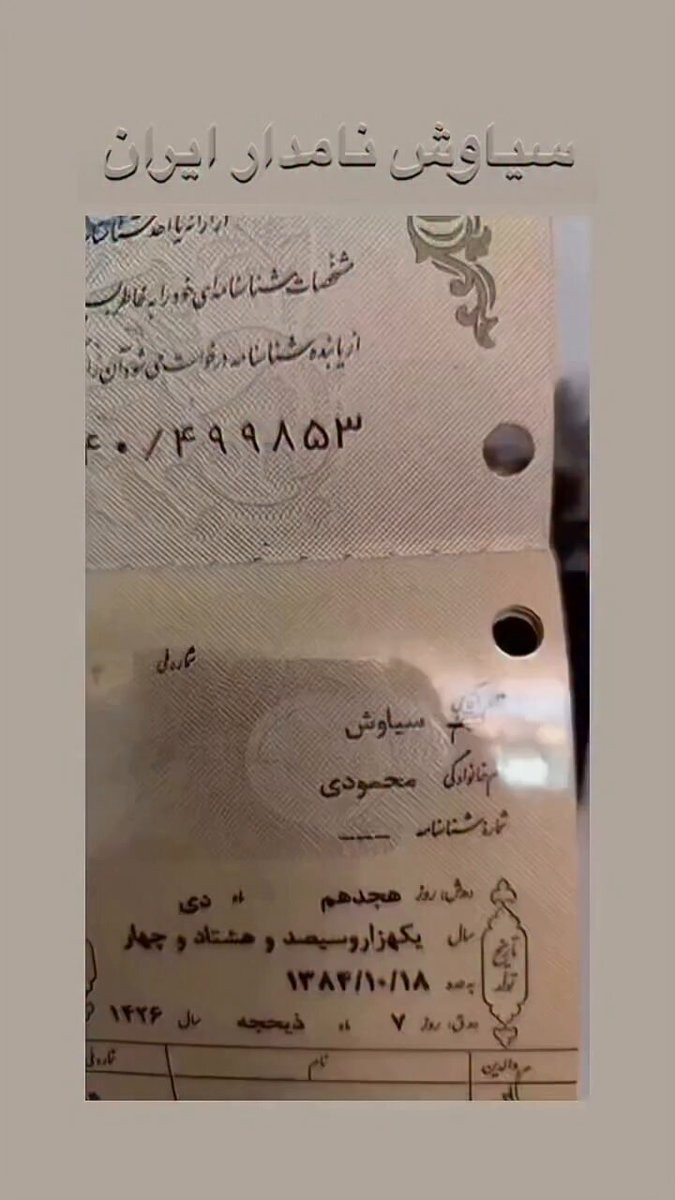 سیاوش نامدار ایران
از ارائه یا اخذ شناسنامه
مشخصات شناسنامه‌ای خود را به خاطر بسپ
از یابنده شناسنامه درخواست می شود آن را
۴۰/۴۹۹۸۵۳
شماره ملی
نام سیاوش
نام خانوادگی محمودی
شماره شناسنامه ---
تاریخ تولد
شمسی: روز هجدهم ماه دی
سال یکهزاروسیصد و هشتاد و چهار
به عدد ۱۳۸۴/۱۰/۱۸
ه‍.ق: روز ۷ ماه ذیحجه سال ۱۴۲۶
والدین نام شماره ملی